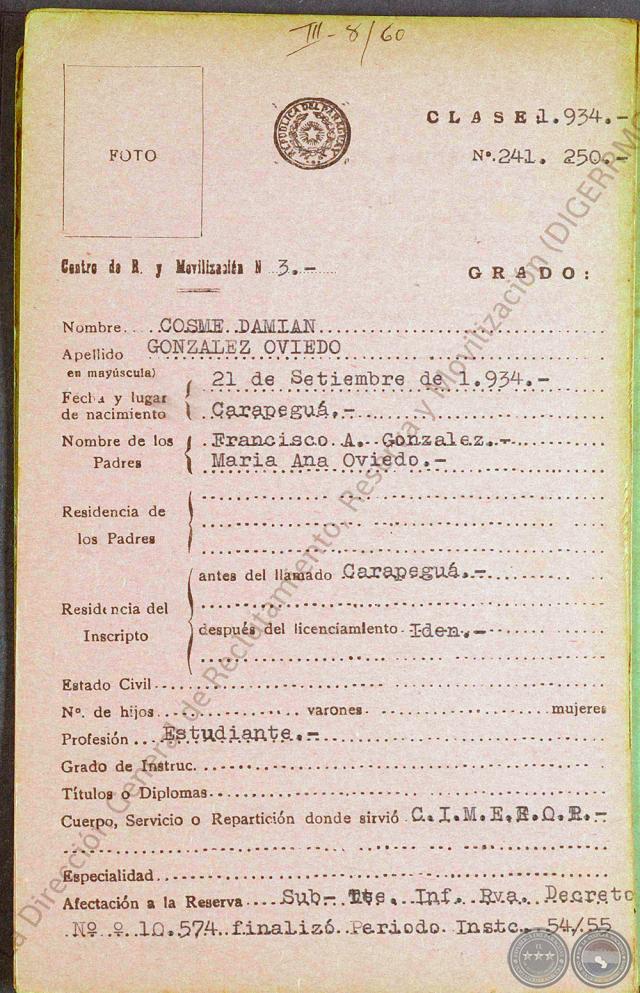 III-8/60
FOTO
REPUBLICA DEL PARAGUAY
CLASE 1.934.-
Nº.241. 250.-
Centro de R. y Movilización N 3.-
GRADO:
Nombre COSME DAMIAN
Apellido GONZALEZ OVIEDO
en mayúscula)
Fecha y lugar de nacimiento 21 de Setiembre de 1.934.-
Carapeguá.-
Nombre de los Padres Francisco A. Gonzalez.-
Maria Ana Oviedo.-
Residencia de los Padres
Residencia del Inscripto
antes del llamado Carapeguá.-
después del licenciamiento Iden.-
Estado Civil
Nº. de hijos varones mujeres
Profesión Estudiante.-
Grado de Instruc.
Títulos o Diplomas
Cuerpo, Servicio o Repartición donde sirvió C.I.M.E.F.O.R.-
Especialidad
Afectación a la Reserva Sub- Tte. Inf. Rva. Decreto
Nº º 10.574 finalizó Periodo Instc. 54/55
a Dirección General de Reclutamiento, Reserva y Movilización (DIGERRMO